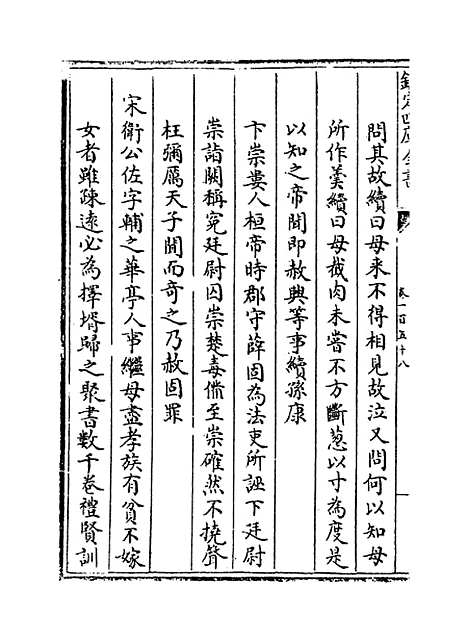 欽定四庫全書
卷一百五十八
問其故續曰母来不得相見故泣又問何以知母
所作羮續曰母截肉未嘗不方斷葱以寸為度是
以知之帝聞即赦興等事續孫康
卞崇婁人桓帝時郡守薛固為法吏所誣下廷尉
崇詣闕稱寃廷尉囚崇楚毒俻至崇確然不撓聲
枉彌厲天子聞而奇之乃赦固罪
宋衛公佐字輔之華亭人事繼母盡孝族有貧不嫁
女者雖疎逺必為擇壻歸之聚書數千卷禮賢訓